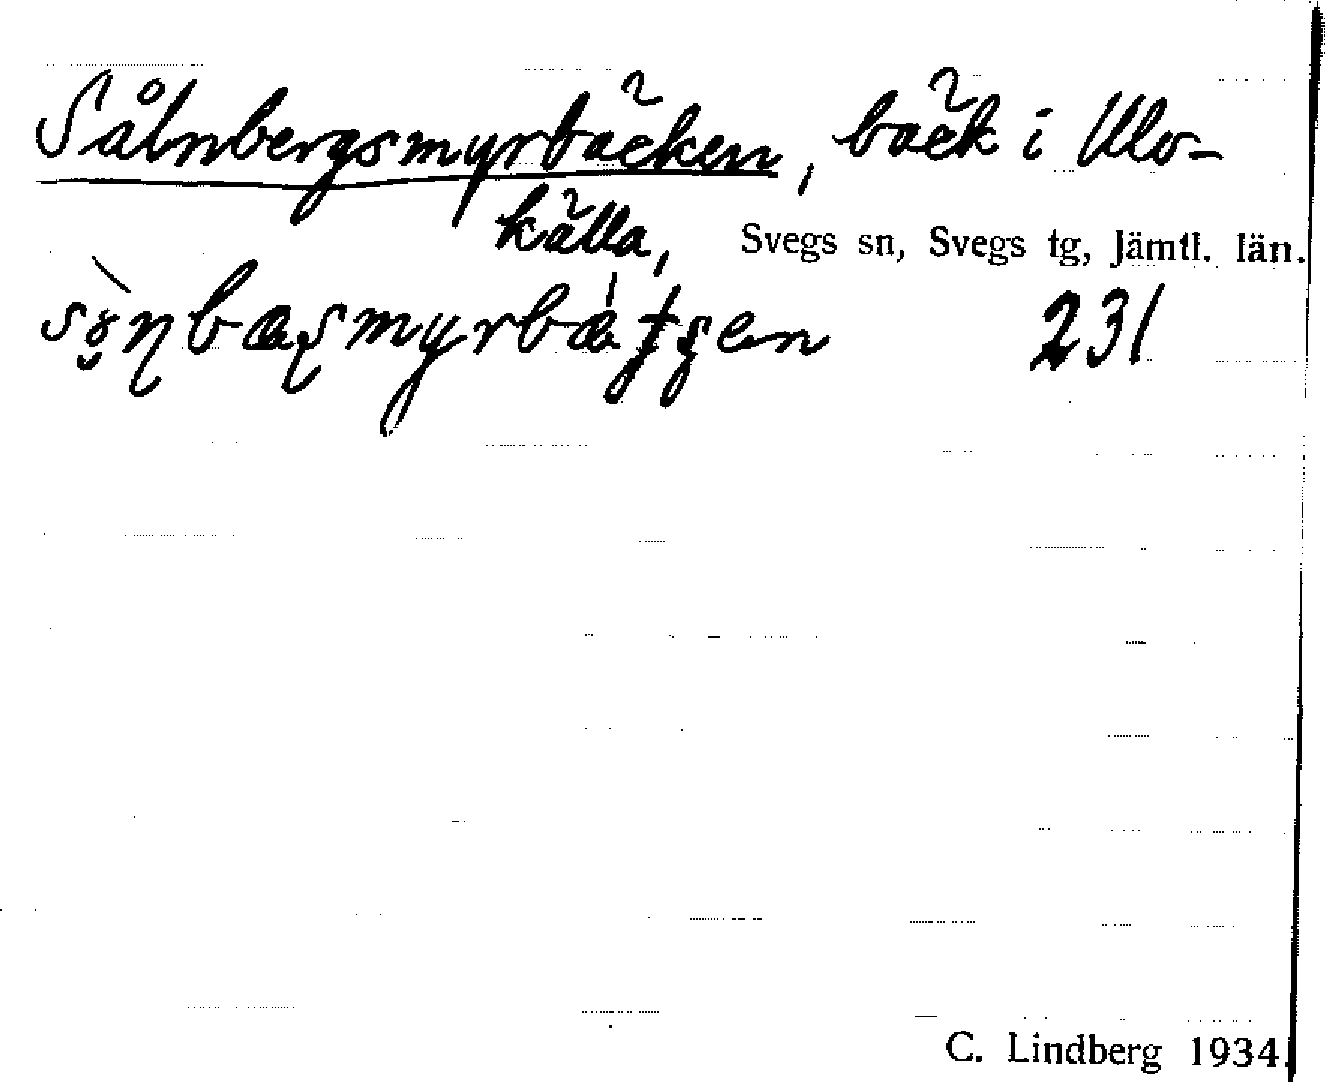 Sålnbergsmyrbäcken, bäck i Ulv-
källa, Svegs sn, Svegs tg, Jämtl. län.
231
C. Lindberg 1934.